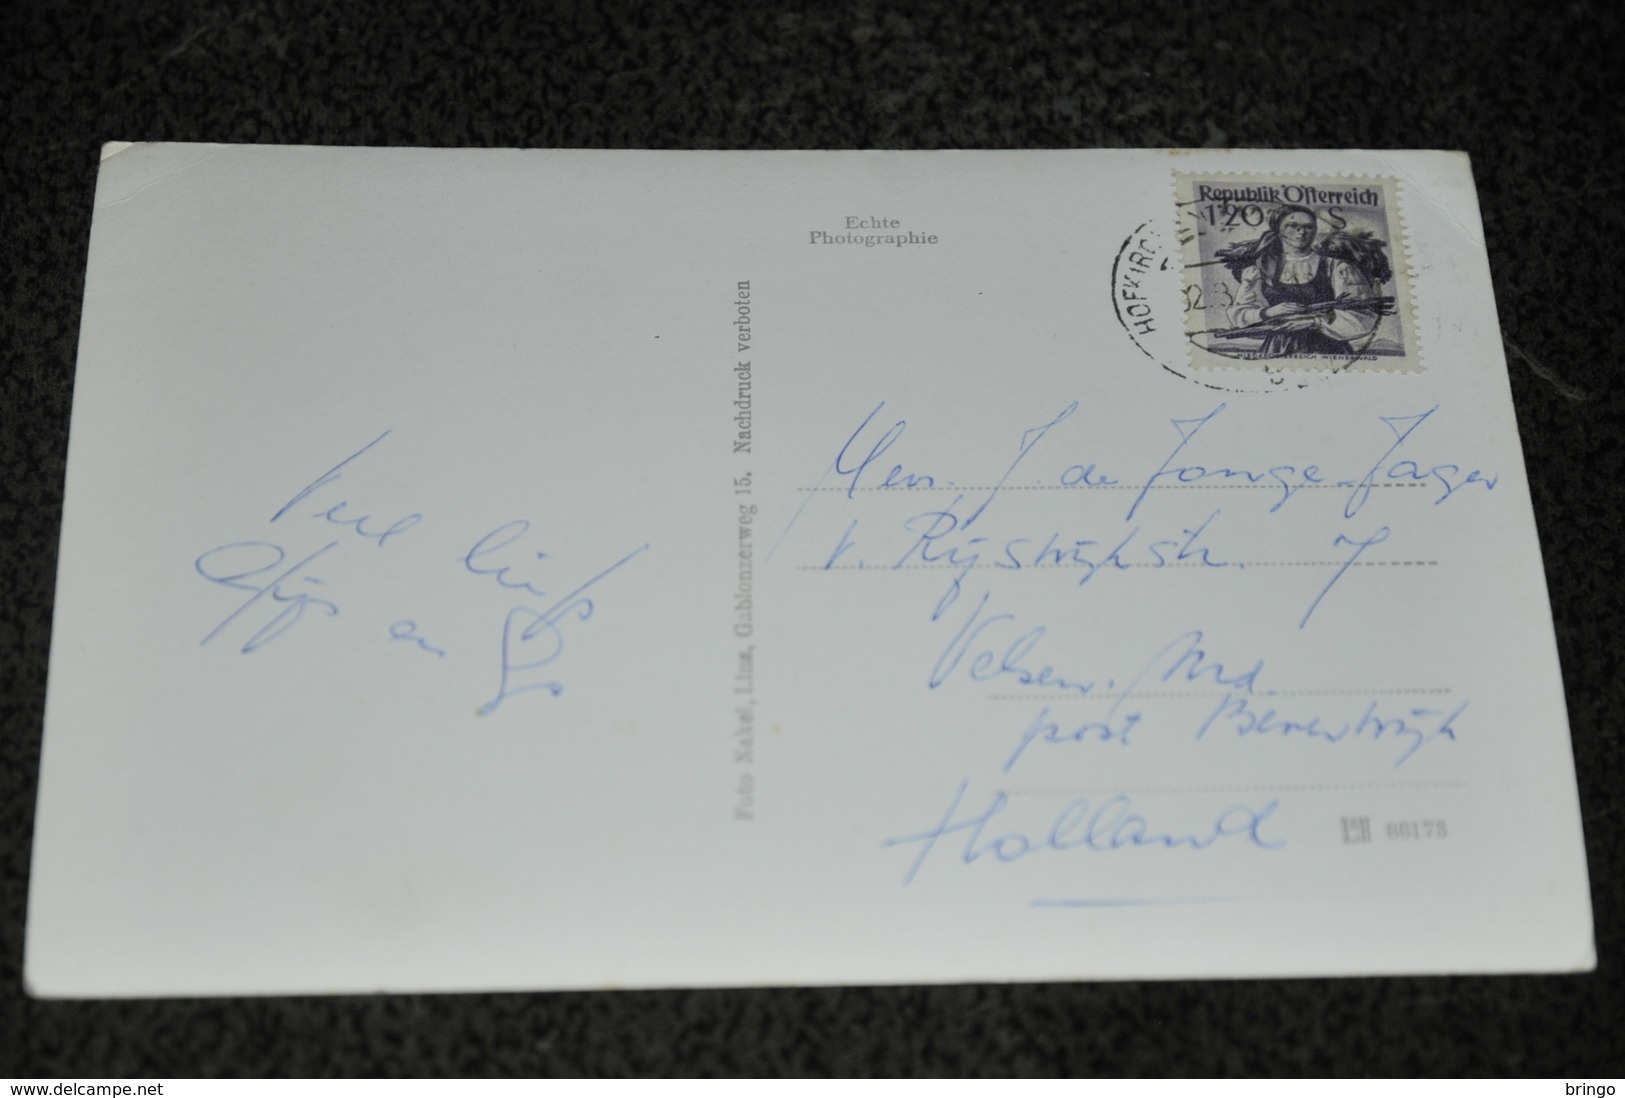 Echte
Photographie
Republik Österreich
1.20 S
NIEDERÖSTERREICH WIENERWALD
HOFKIRCH
Foto Nakel, Linz, Gablonzerweg 15. Nachdruck verboten
Veel liefs
en
Mevr. J. de Jonge-Jager
v. Rijswijkstr. 7
Velsen. Nrd.
post Beverwijk
Holland
86173
delcampe.net
bringo